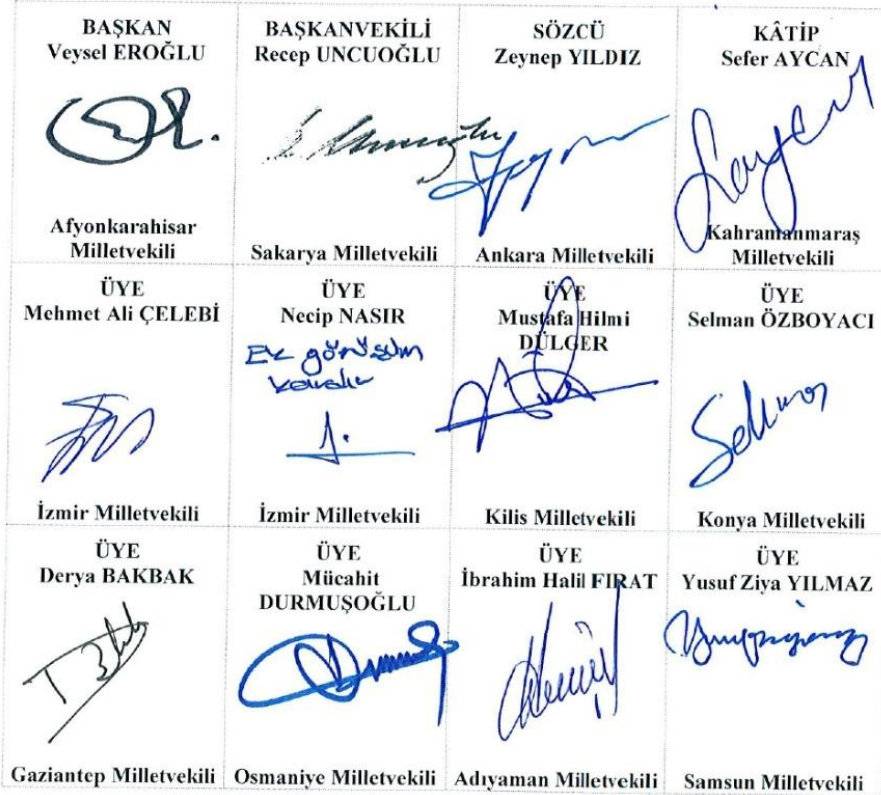 BAŞKAN
Veysel EROĞLU
Afyonkarahisar
Milletvekili
BAŞKANVEKİLİ
Recep UNCUOĞLU
Sakarya Milletvekili
SÖZCÜ
Zeynep YILDIZ
Ankara Milletvekili
KÂTİP
Sefer AYCAN
Kahramanmaraş
Milletvekili
ÜYE
Mehmet Ali ÇELEBİ
İzmir Milletvekili
ÜYE
Necip NASIR
Ek görüşüm
İzmir Milletvekili
ÜYE
Mustafa Hilmi
DÜLGER
Kilis Milletvekili
ÜYE
Selman ÖZBOYACI
Konya Milletvekili
ÜYE
Derya BAKBAK
Gaziantep Milletvekili
ÜYE
Mücahit
DURMUŞOĞLU
Osmaniye Milletvekili
ÜYE
İbrahim Halil FIRAT
Adıyaman Milletvekili
ÜYE
Yusuf Ziya YILMAZ
Samsun Milletvekili